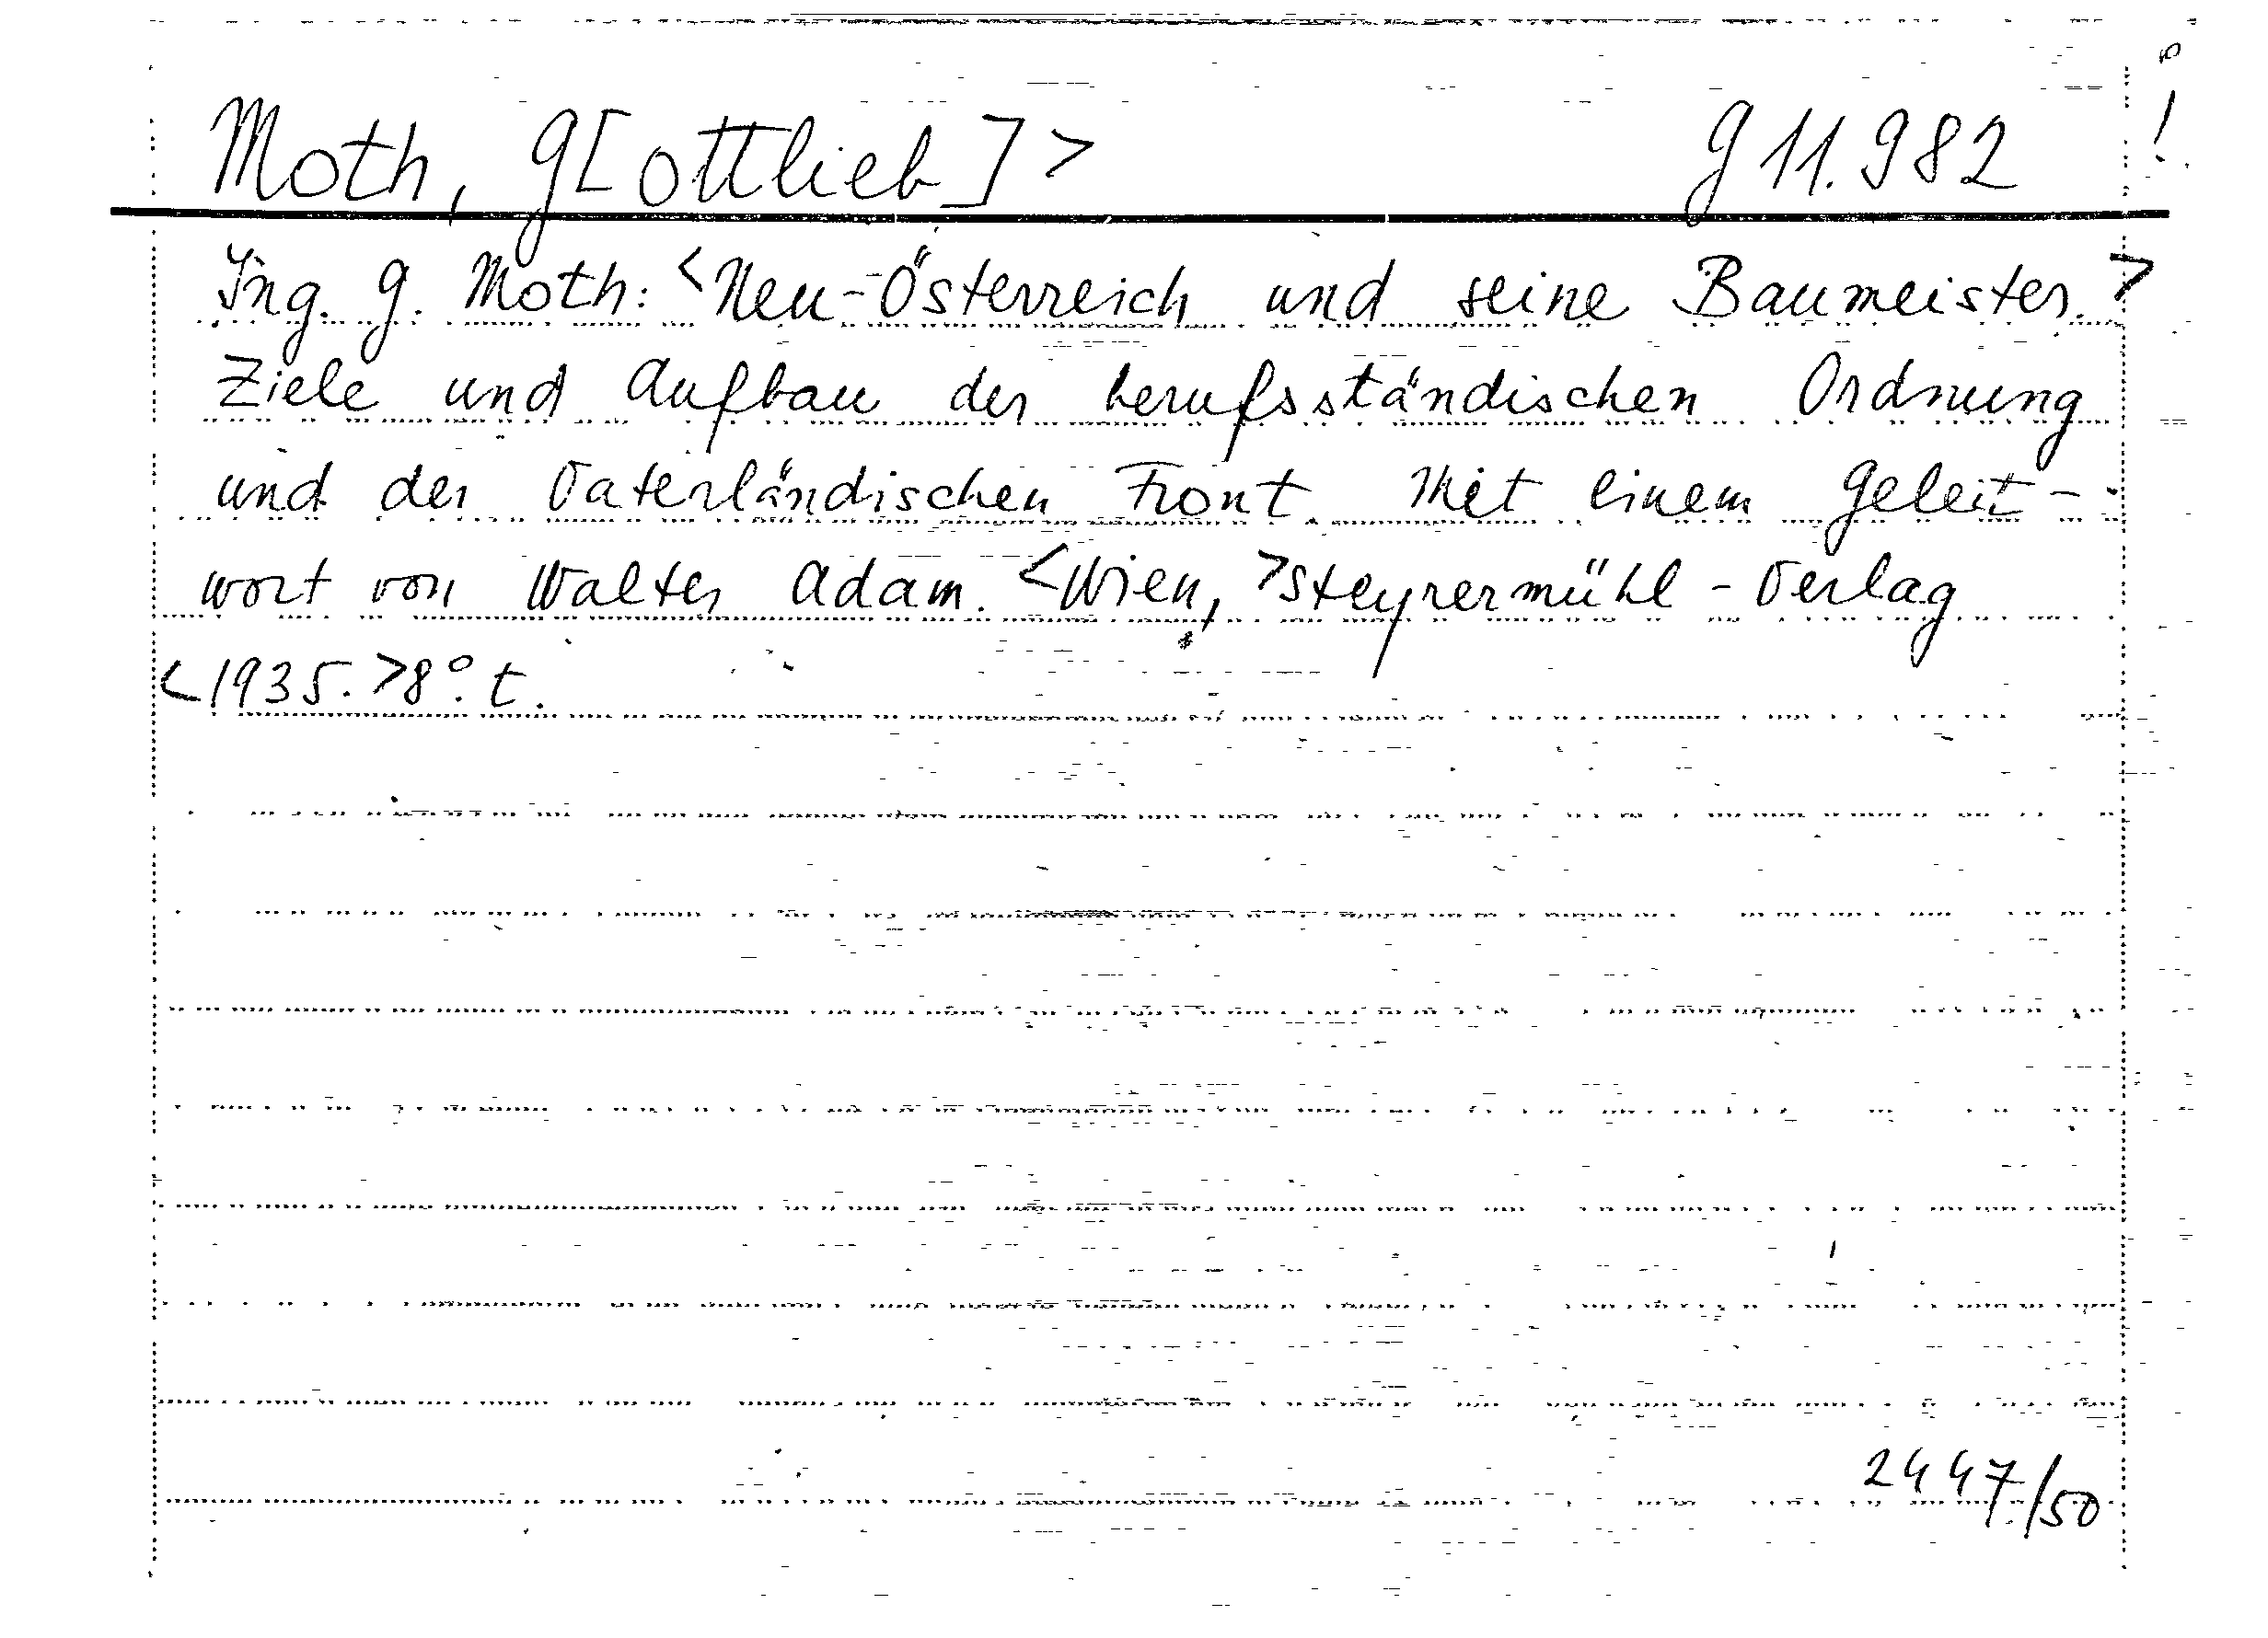 Moth, G[ottlieb]> G 11.982 !
Ing. G. Moth: <Neu-Österreich und seine Baumeister.>
Ziele und Aufbau der berufsständischen Ordnung
und der Vaterländischen Front. Mit einem Geleit-
wort von Walter Adam. <Wien, >Steyrermühl-Verlag
<1935. >8°. t.
2447/50